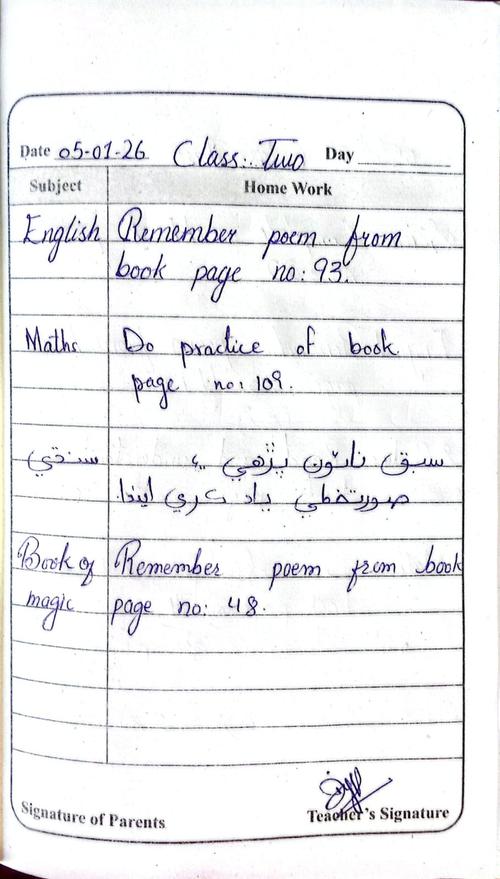 Date 05-01-26 Class: Two Day
Subject Home Work
English Remember poem from
book page no: 93.
Maths Do practice of book
page no: 109.
سنڌي سبق نائون پڙهي ۽
صورتخطي ياد ڪري ايندا.
Book of Remember poem from book
magic page no: 48.
Signature of Parents Teacher's Signature